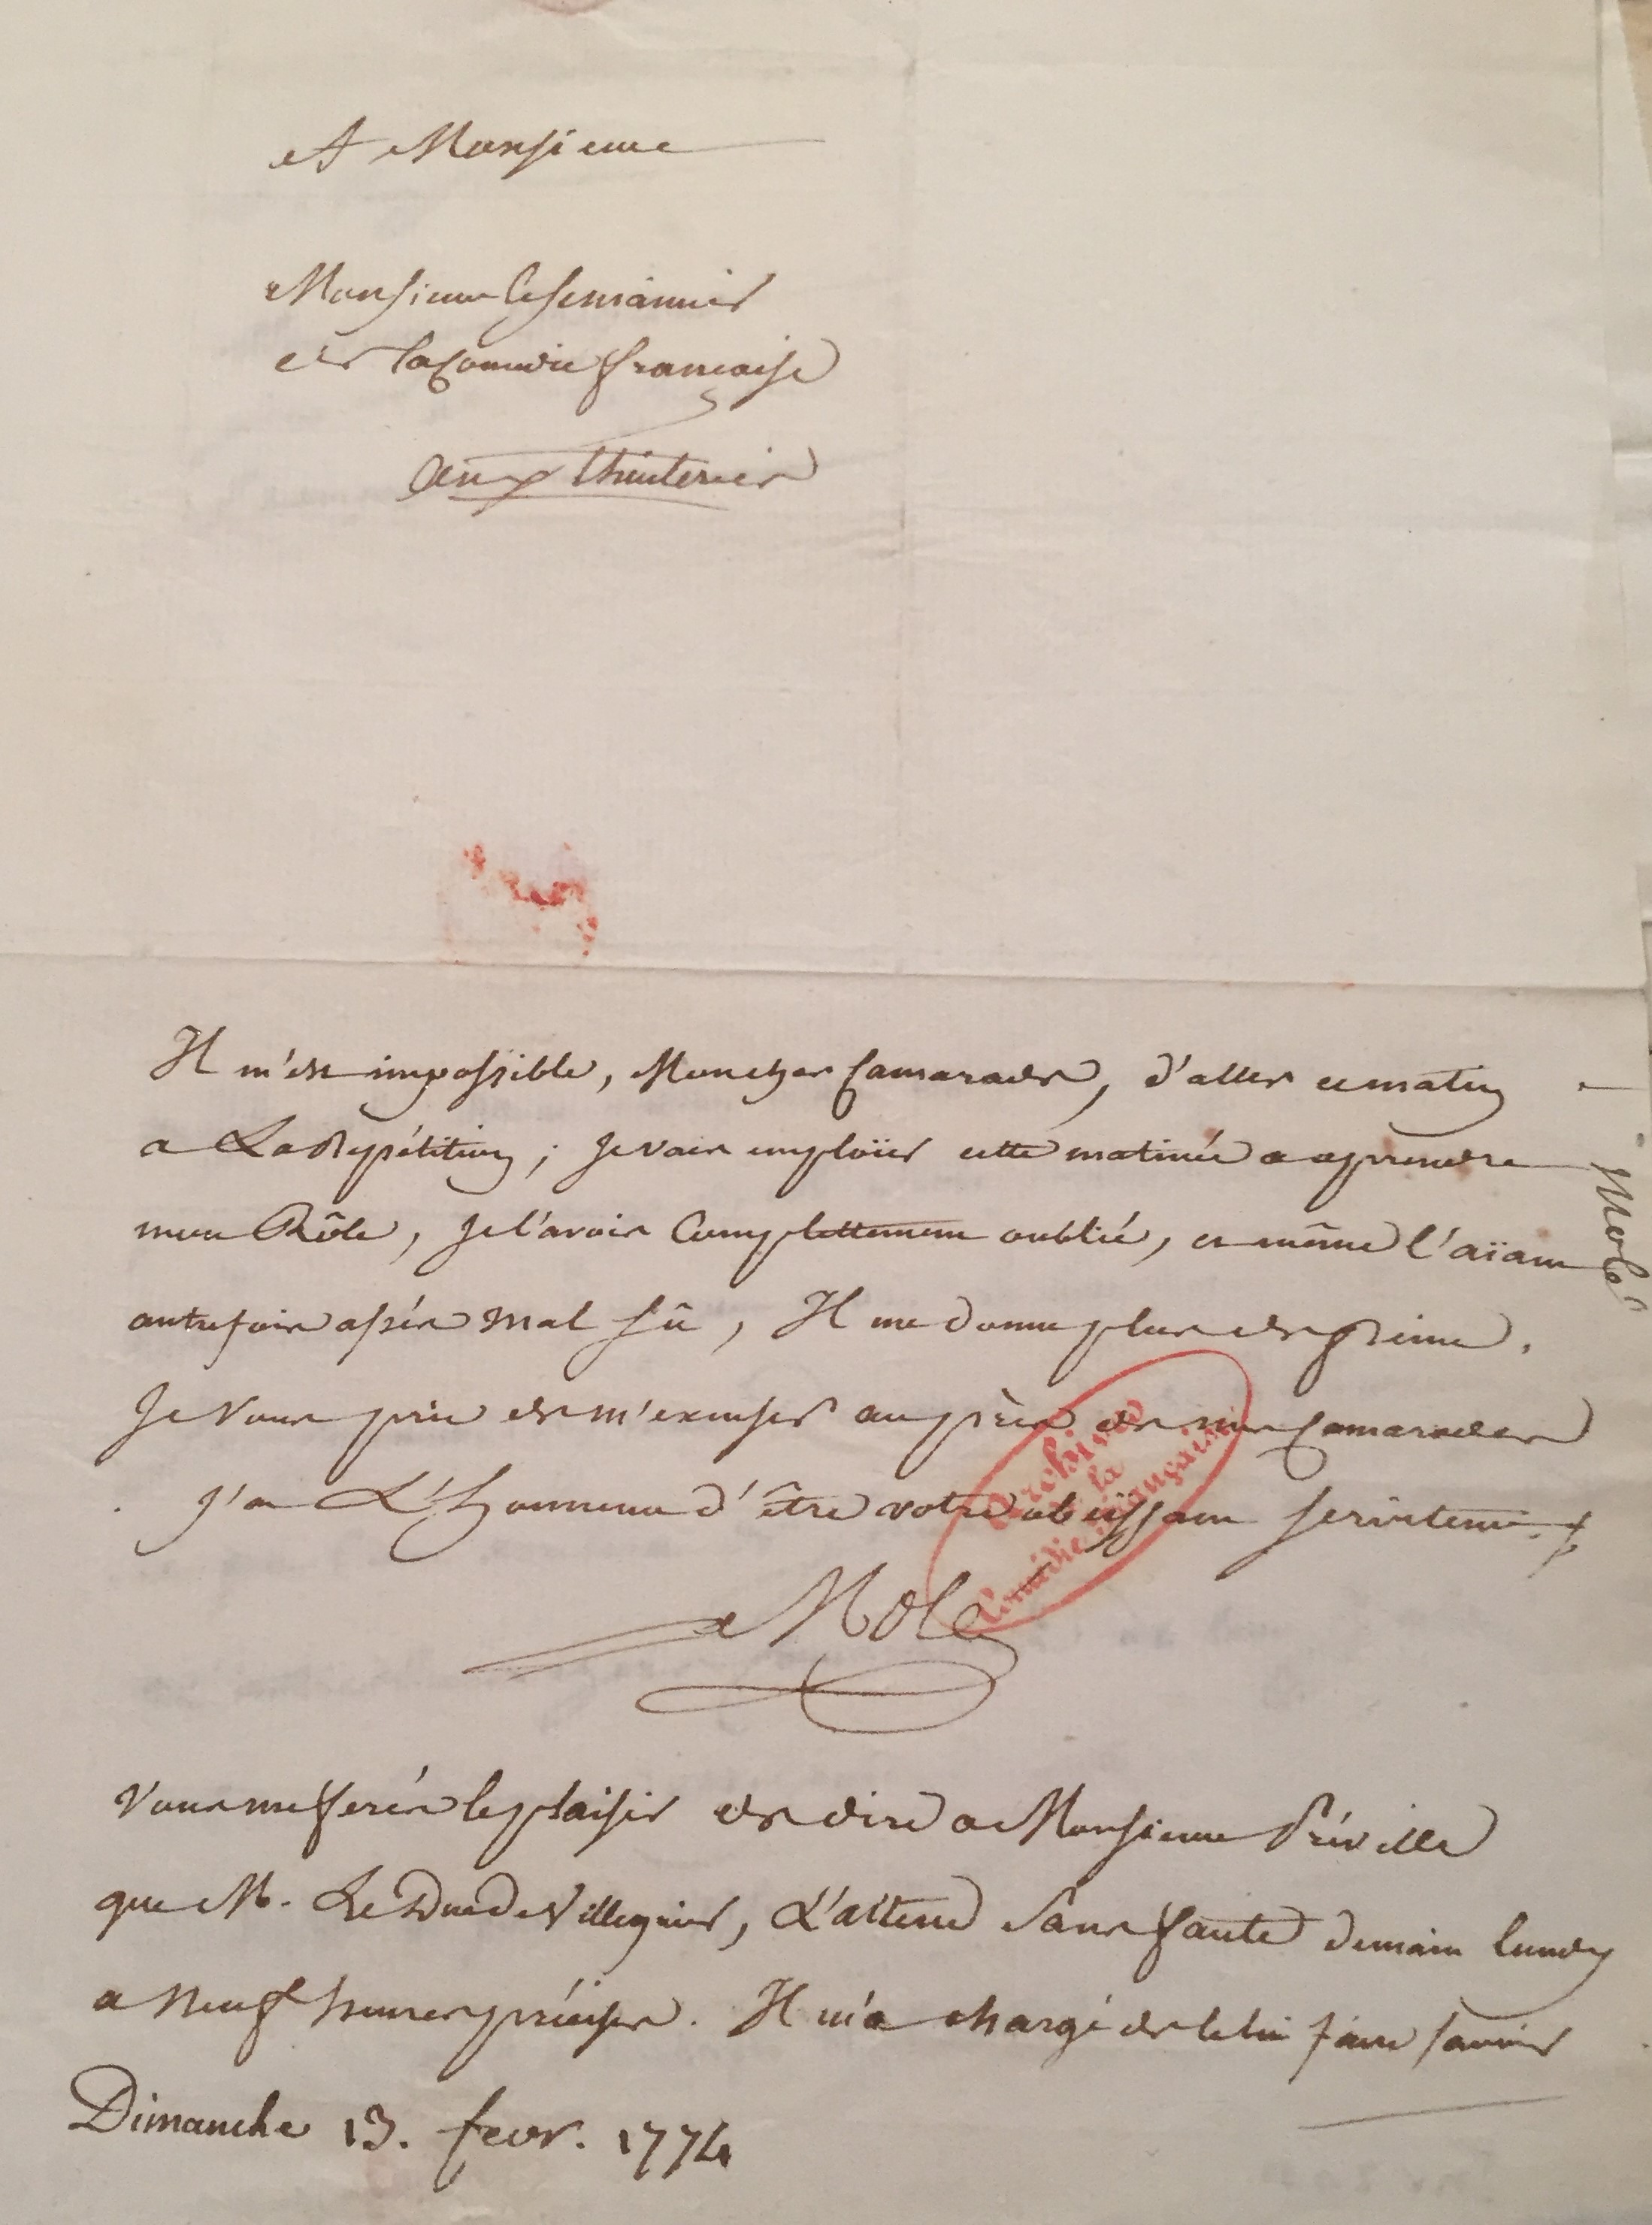 A Monsieur
Monsieur le semainier
de la Comédie françoise
aux thuileries
Il m'est impossible, Mon cher Camarade, d'aller ce matin
a La Répétition ; Je vais emploïer cette matinée a aprendre
mon Rôle, Je l'avois Complettement oublié, et même l'aïant
autrefois assés mal sçû, Il me donne plus de peine.
Je vous prie de m'excuser auprès de mes Camarades
J'ai L'honneur d'être votre obeissant serviteur
Molé
Archives
de la
Comédie française
Vous me ferés le plaisir de dire a Monsieur Préville
que M. Le Duc de Villequier, L'attend sans faute demain lundy
a neuf heures précises. Il m'a chargé de le lui faire savoir
Dimanche 13. fevr. 1774
Molé